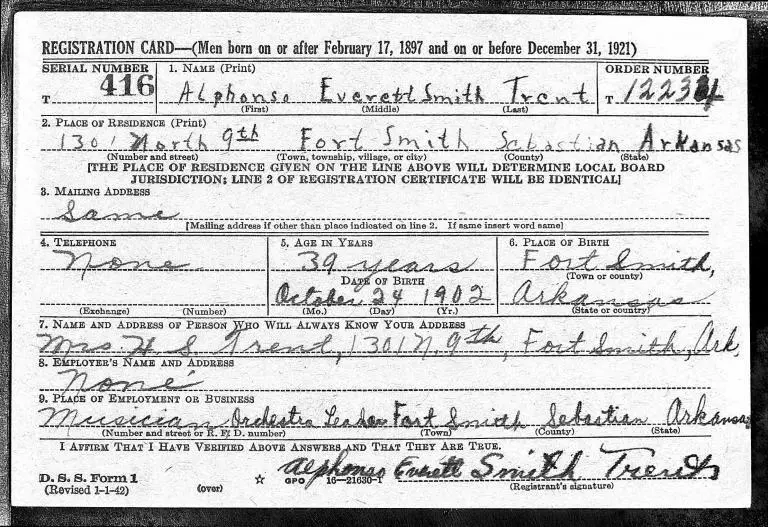 REGISTRATION CARD—(Men born on or after February 17, 1897 and on or before December 31, 1921)
SERIAL NUMBER
T 416
1. NAME (Print)
Alphonso Everett Smith Trent
(First) (Middle) (Last)
ORDER NUMBER
T 12234
2. PLACE OF RESIDENCE (Print)
1301 North 9th Fort Smith Sebastian Arkansas
(Number and street) (Town, township, village, or city) (County) (State)
[THE PLACE OF RESIDENCE GIVEN ON THE LINE ABOVE WILL DETERMINE LOCAL BOARD
JURISDICTION; LINE 2 OF REGISTRATION CERTIFICATE WILL BE IDENTICAL]
3. MAILING ADDRESS
Same
[Mailing address if other than place indicated on line 2. If same insert word same]
4. TELEPHONE
None
(Exchange) (Number)
5. AGE IN YEARS
39 years
DATE OF BIRTH
October 24 1902
(Mo.) (Day) (Yr.)
6. PLACE OF BIRTH
Fort Smith,
(Town or county)
Arkansas
(State or country)
7. NAME AND ADDRESS OF PERSON WHO WILL ALWAYS KNOW YOUR ADDRESS
Mrs H. S. Trent, 1301 N. 9th, Fort Smith, Ark,
8. EMPLOYER'S NAME AND ADDRESS
None
9. PLACE OF EMPLOYMENT OR BUSINESS
Musician Orchestra Leader Fort Smith Sebastian Arkansas
(Number and street or R. F. D. number) (Town) (County) (State)
I AFFIRM THAT I HAVE VERIFIED ABOVE ANSWERS AND THAT THEY ARE TRUE.
Alphonso Everett Smith Trent
D. S. S. Form 1
(Revised 1-1-42) (over) ☆ GPO 16—21630-1 (Registrant's signature)